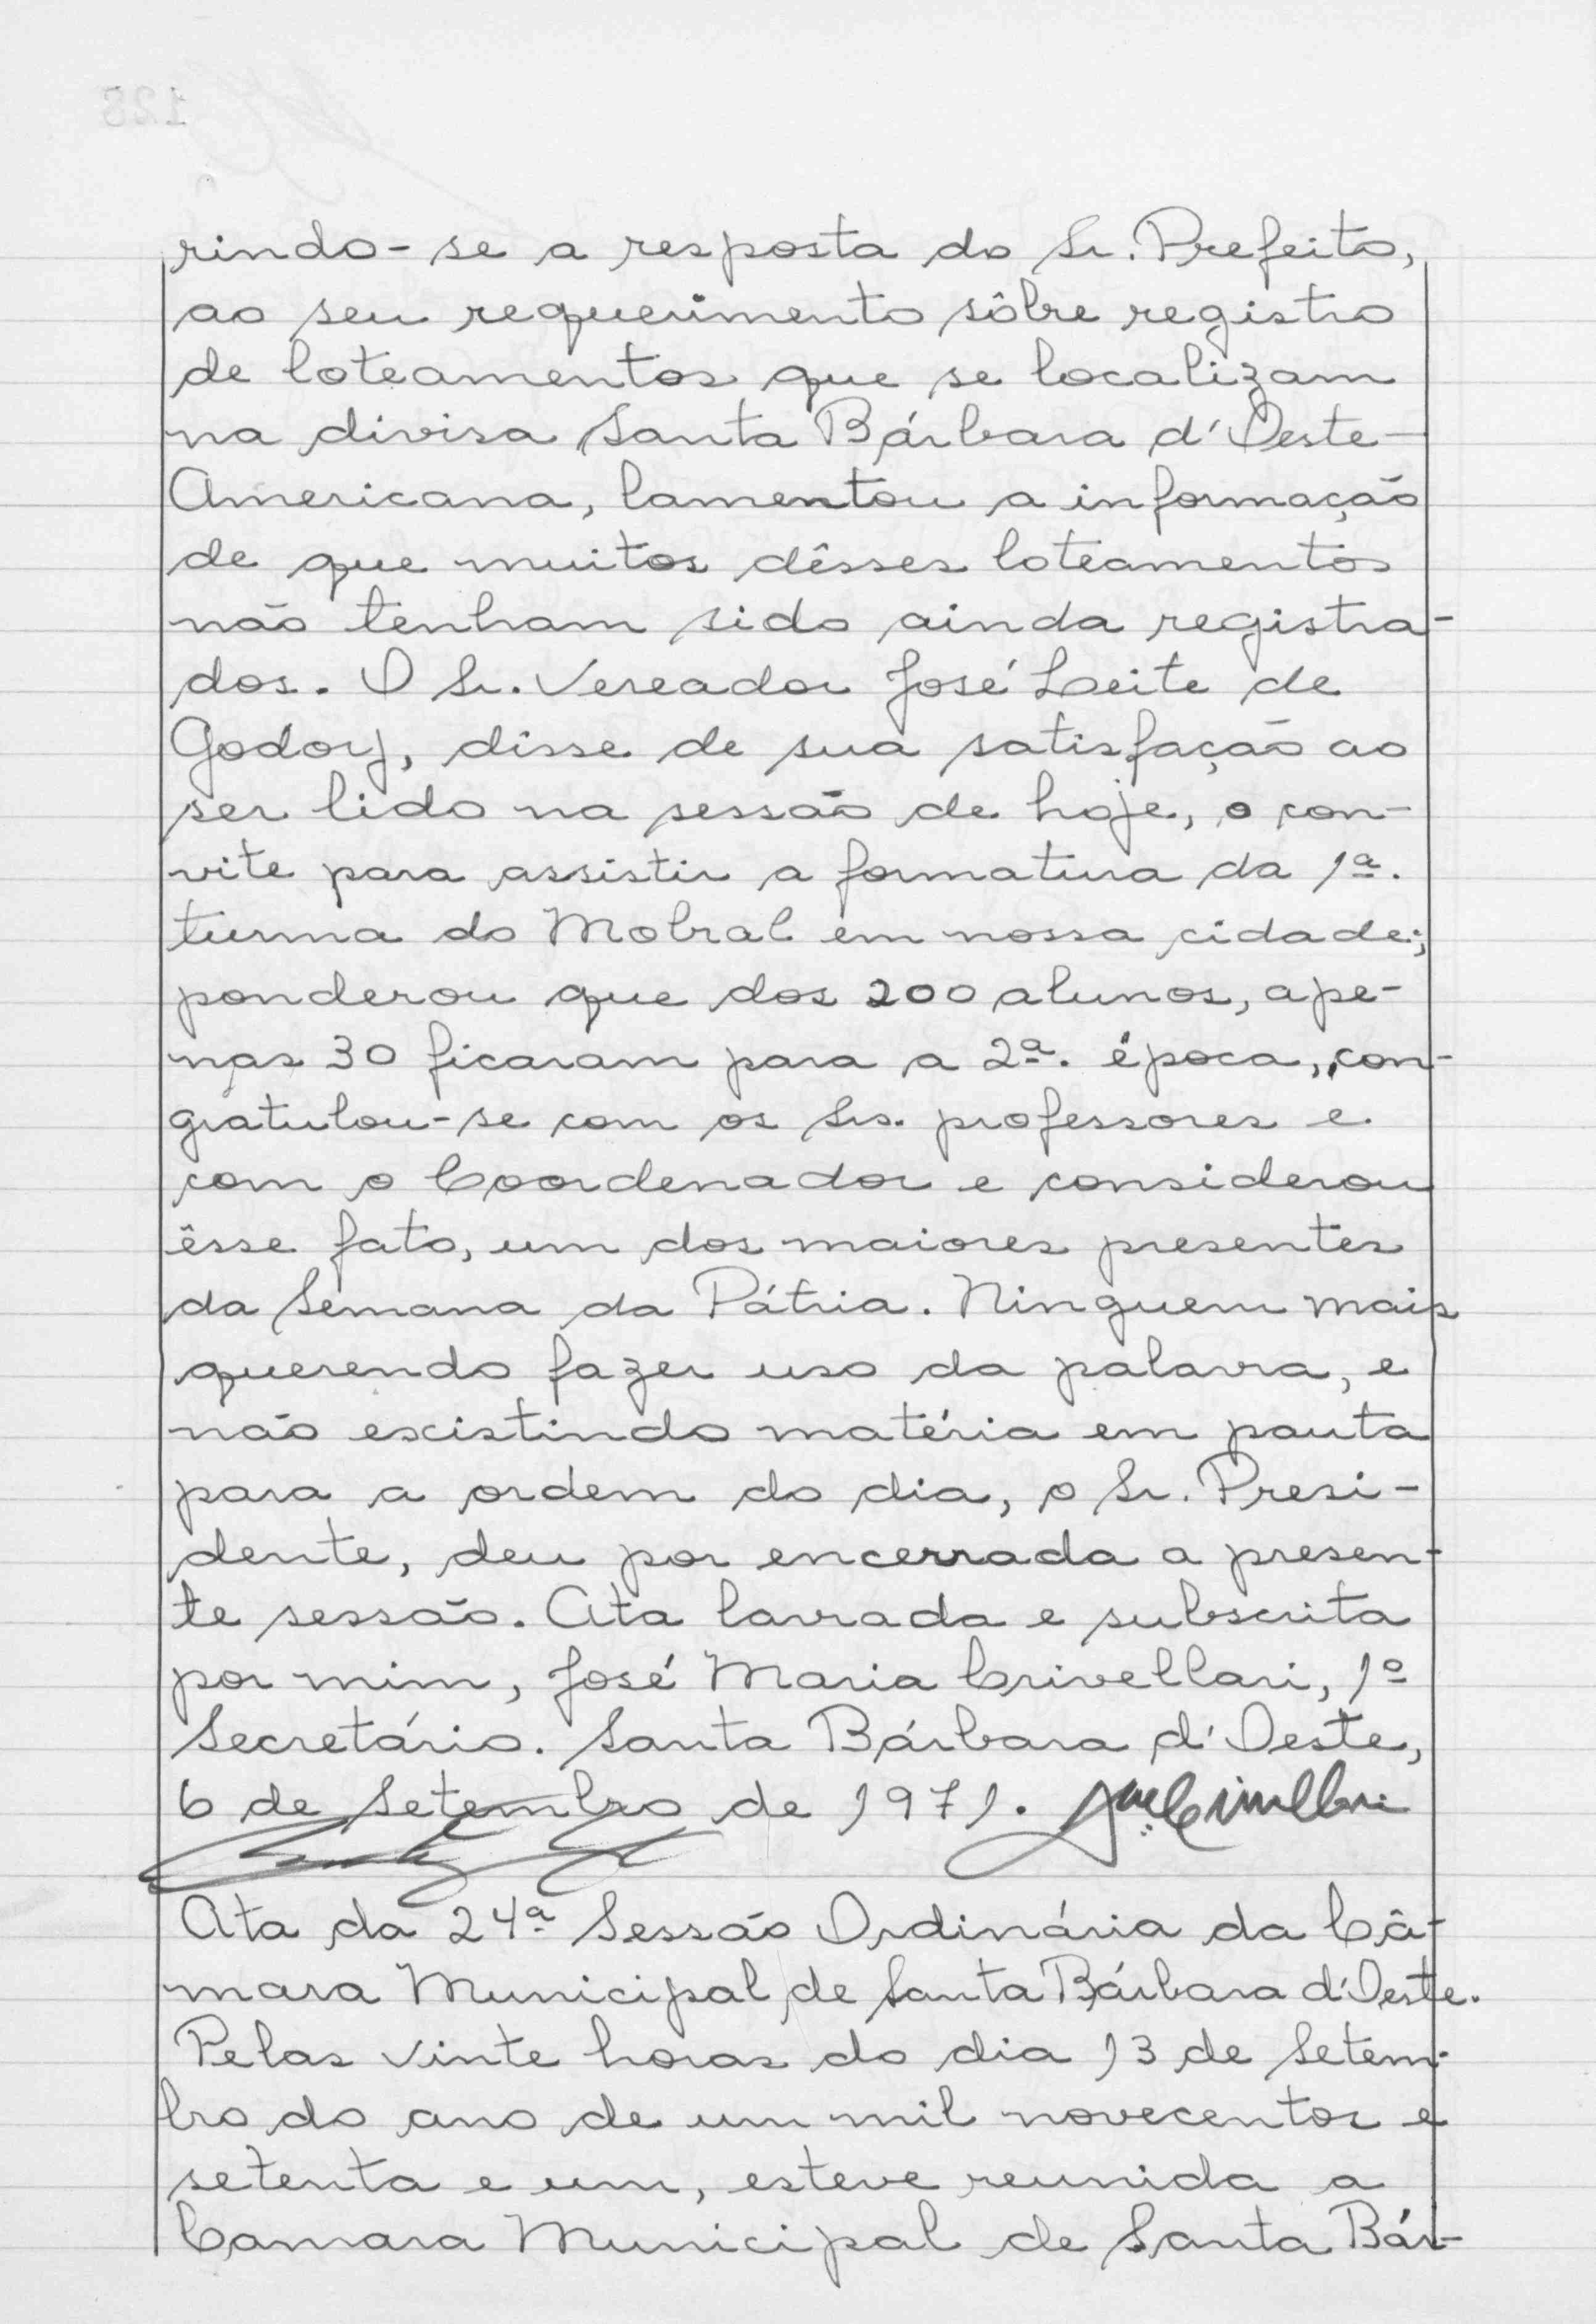 rindo-se a resposta do Sr. Prefeito,
ao seu requerimento sôbre registro
de loteamentos que se localizam
na divisa Santa Bárbara d'Oeste-
Americana, lamentou a informação
de que muitos dêsses loteamentos
não tenham sido ainda registra-
dos. O Sr. Vereador José Leite de
Godoy, disse de sua satisfação ao
ser lido na sessão de hoje, o con-
vite para assistir a formatura da 1ª.
turma do Mobral em nossa cidade;
ponderou que dos 200 alunos, ape-
nas 30 ficaram para a 2ª. época, con-
gratulou-se com os Srs. professores e
com o Coordenador e considerou
êsse fato, um dos maiores presentes
da Semana da Pátria. Ninguem mais
querendo fazer uso da palavra, e
não existindo matéria em pauta
para a ordem do dia, o Sr. Presi-
dente, deu por encerrada a presen-
te sessão. Ata lavrada e subscrita
por mim, José Maria Crivellari, 1º
Secretário. Santa Bárbara d'Oeste,
6 de Setembro de 1971.
Ata da 24ª Sessão Ordinária da Câ-
mara Municipal de Santa Bárbara d'Oeste.
Pelas vinte horas do dia 13 de Setem-
bro do ano de um mil novecentos e
setenta e um, esteve reunida a
Camara Municipal de Santa Bár-